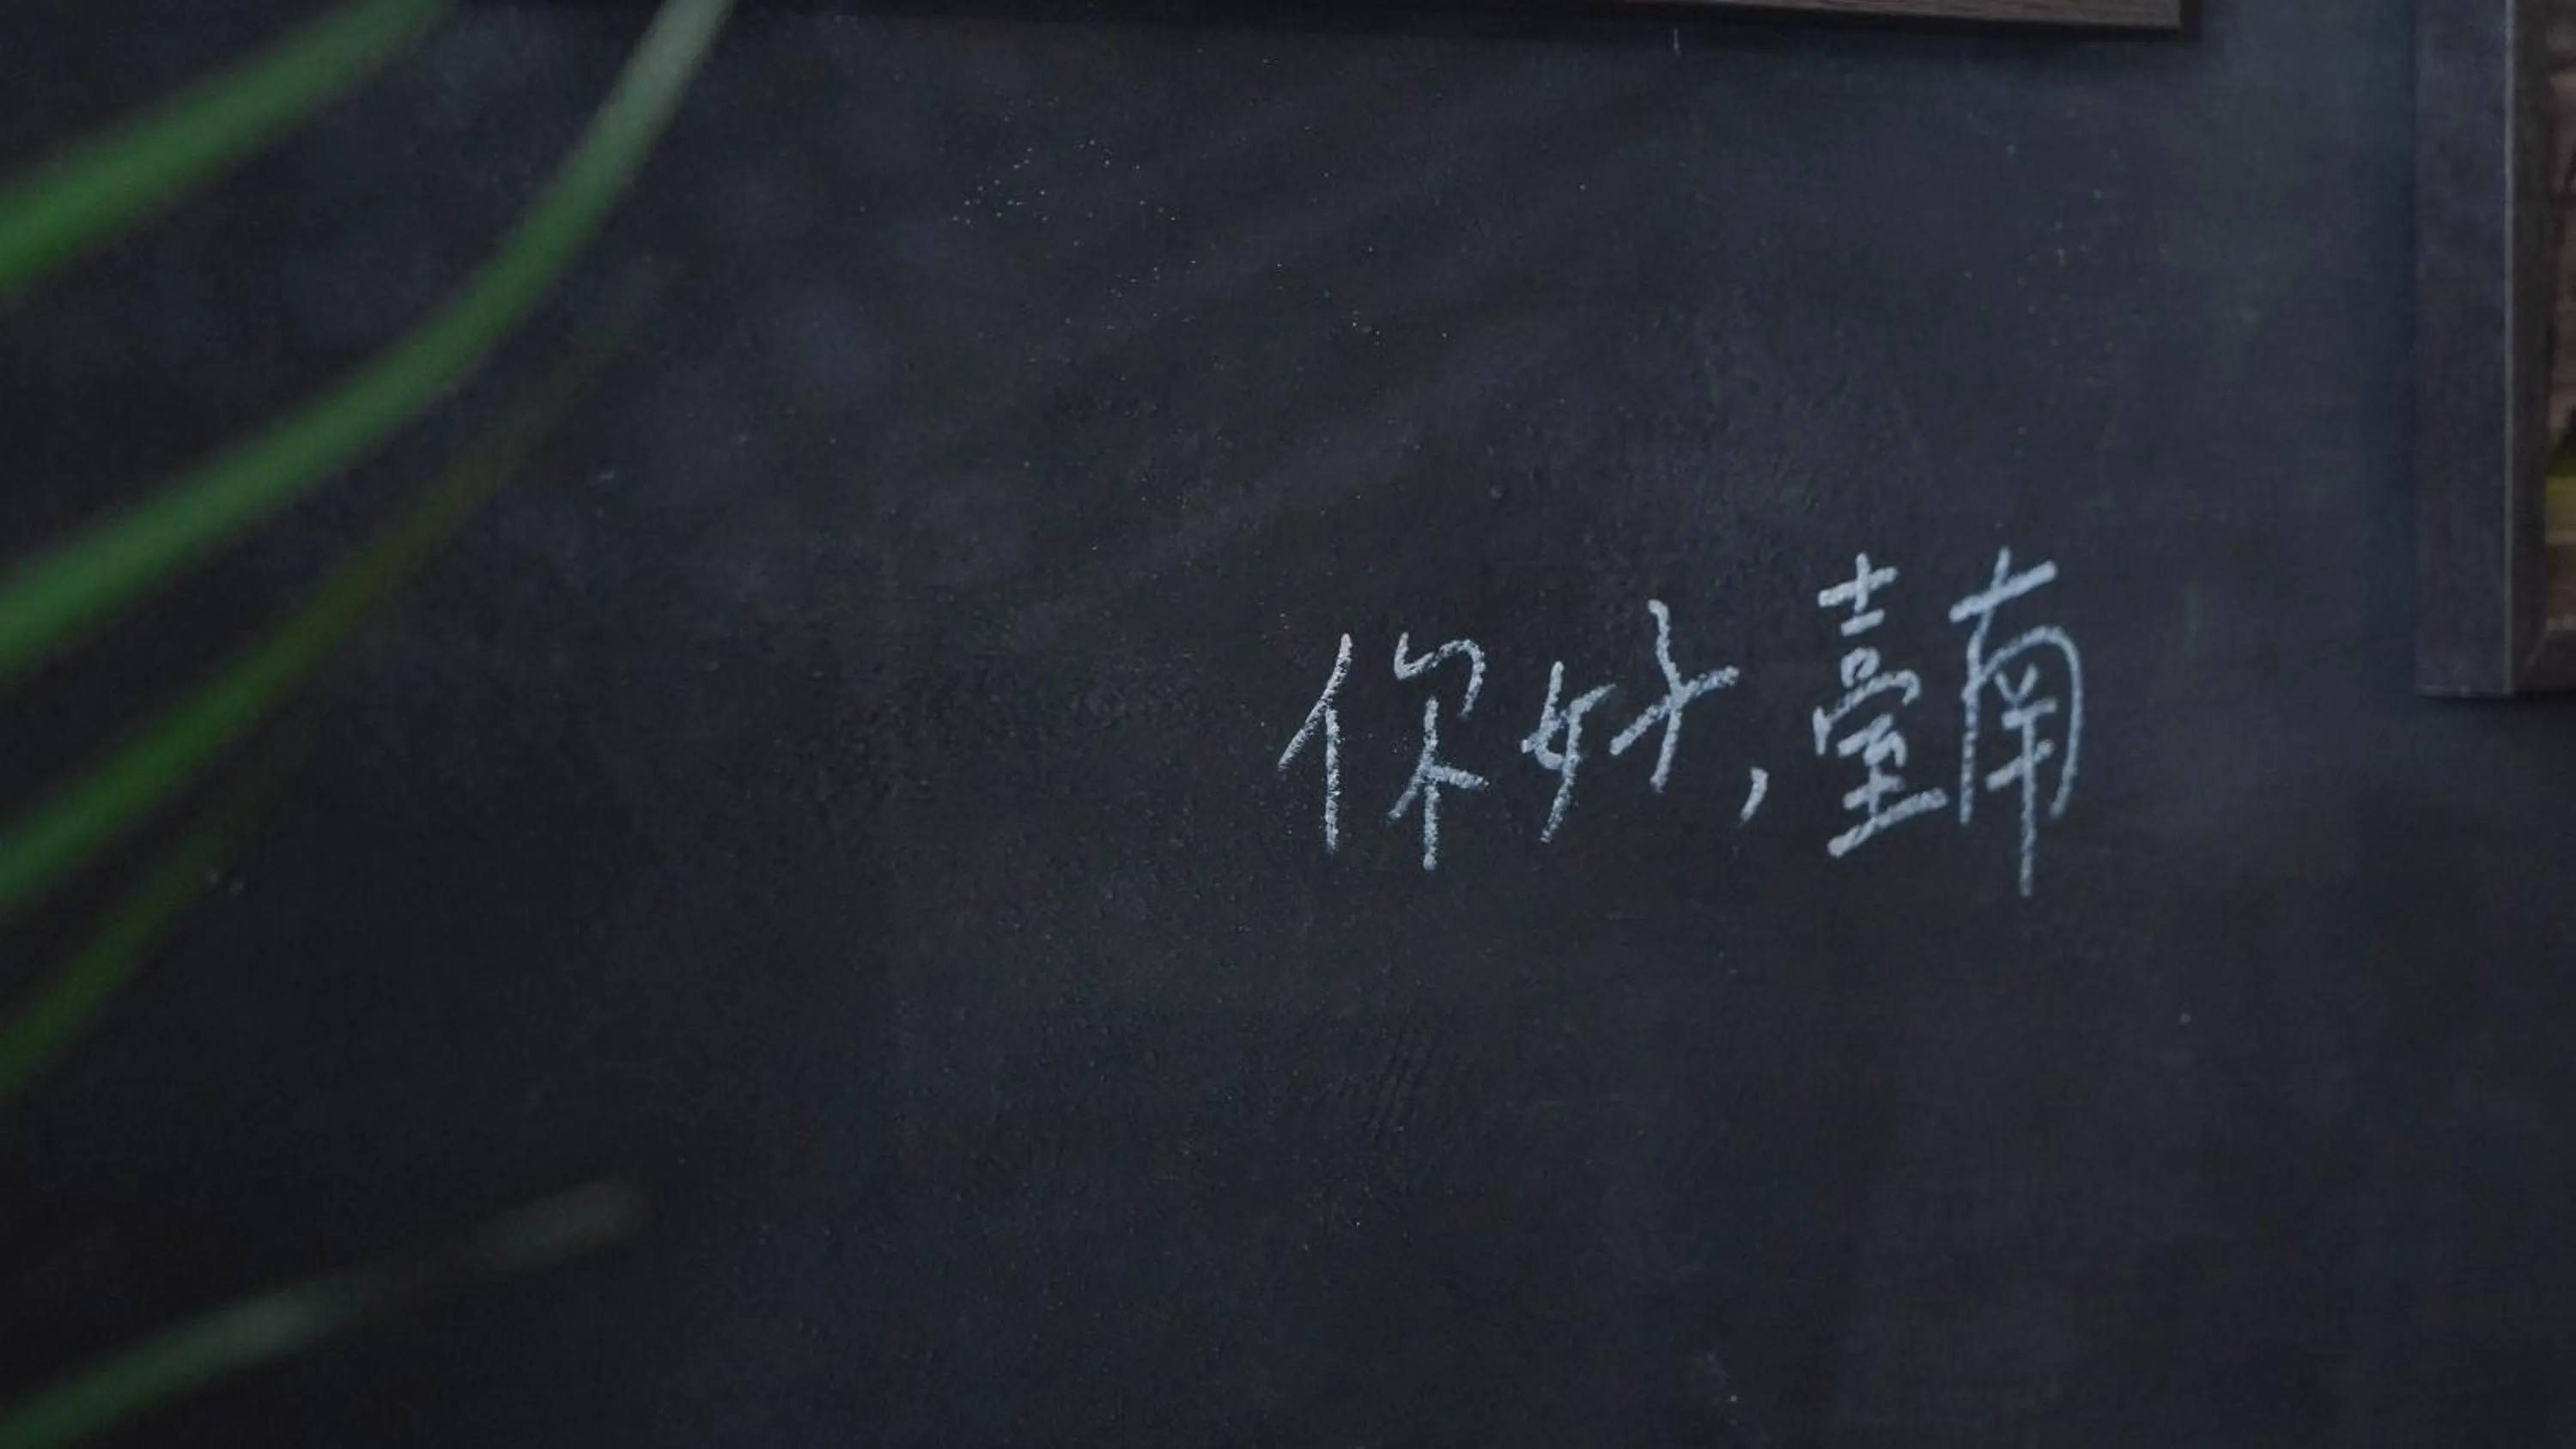 你好,臺南